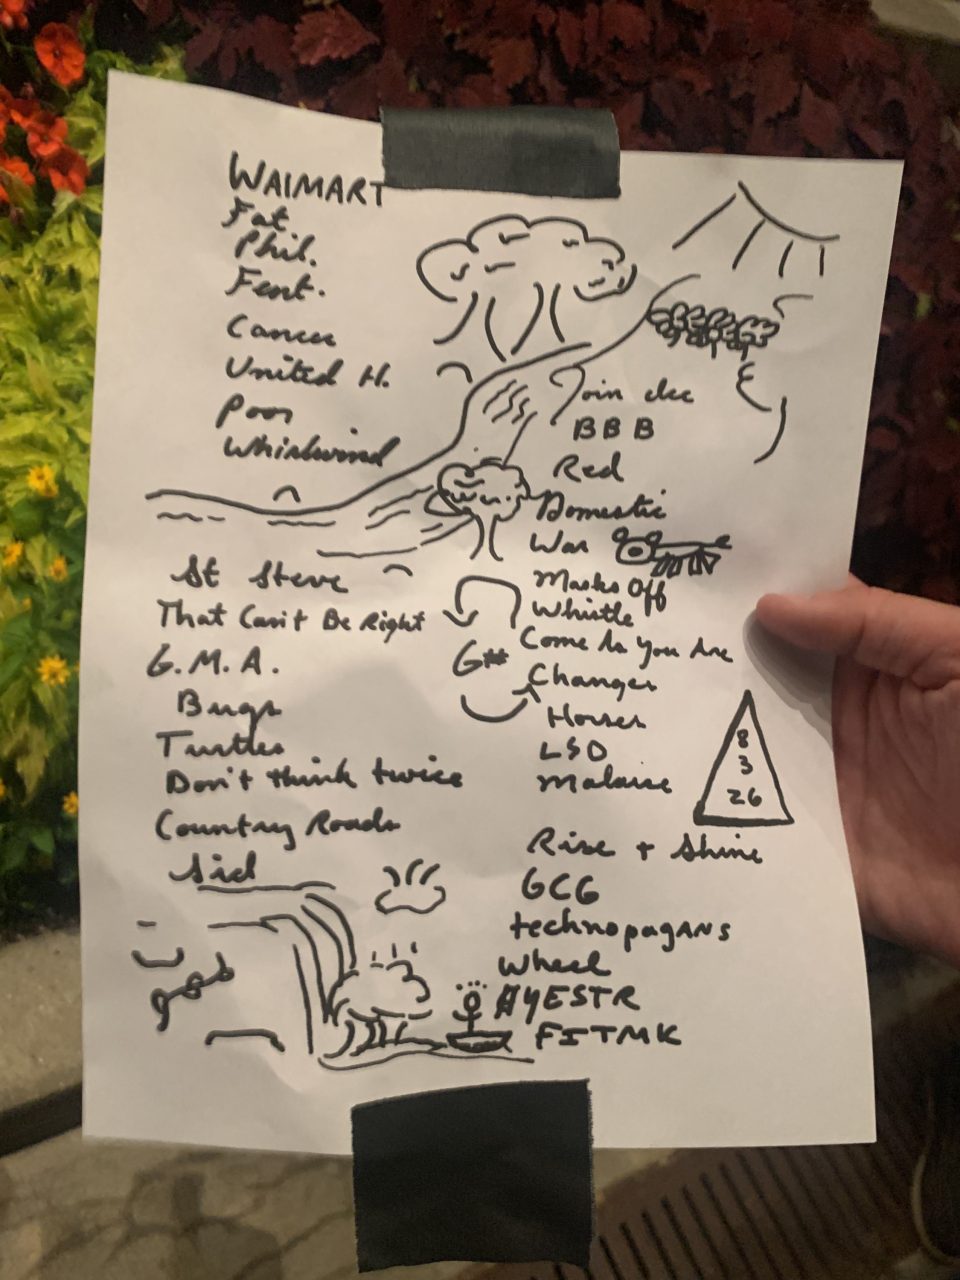 WAlMART
Fat
Phil.
Fent.
Cancer
United H.
Poor
Whirlwind
Join Ice
BBB
Red
Domestic
War
Masks Off
Whistle
Come As You Are
Changes
Horses
LSD
Malaise
St Steve
That Can't Be Right
G.M.A.
Bugs
Turtles
Don't think twice
Country Roads
Sid
G#
8
3
26
Rise + Shine
GCG
technopagans
Wheel
AYESTR
FITMK